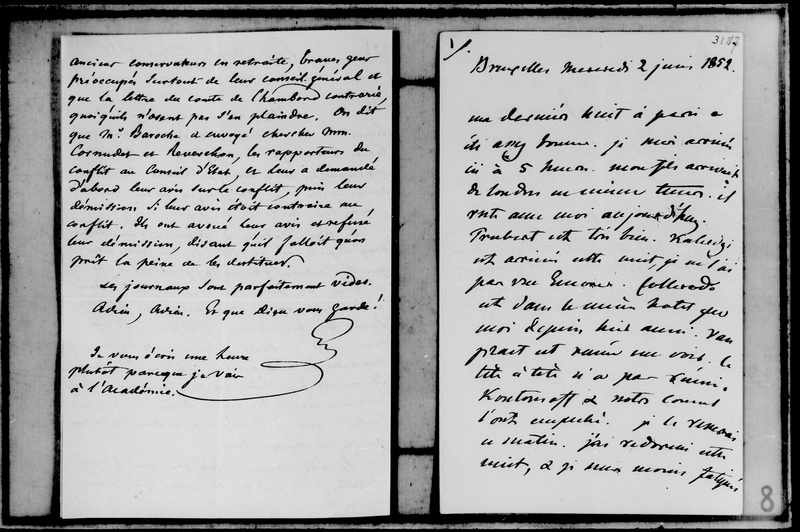 anciens conservateurs en retraite, braves gens
préoccupés surtout de leur conseil général et
que la lettre du comte de Chambord contrarie,
quoiqu'ils n'osent pas s'en plaindre. On dit
que Mr. Baroche a envoyé chercher Mm.
Cornudet et Reverchon, les rapporteurs du
conflit au Conseil d'Etat, et leur a demandé
d'abord leur avis sur le conflit, puis leur
démission si leur avis étoit contraire au
conflit. Ils ont avoué leur avis et refusé
leur démission, disant qu'il falloit qu'on
prît la peine de les destituer.
Les journaux sont parfaitement vides.
Adieu, Adieu. Et que Dieu vous garde!
Je vous écris une heure
plutôt parceque je vais
à l'Académie.
3187
1/.
Bruxelles Mercredi 2 juin 1852.
ma dernière nuit à paris a
été assez bonne. je suis arrivée
ici à 5 heures. mon fils arrivait
de Londres en même temps. il
reste avec moi aujourd'hui.
est très bien.
est arrivé cette nuit, je ne l'ai
pas vue encore. Colloredo
est dans le même hotel que
moi depuis huit aussi. Van
praet est venu me voir. le
tête à tête n'a pas
& notre
l'ont empêché. je le reverrai
ce matin. j'ai cette
nuit, & je suis moins fatiguée
8